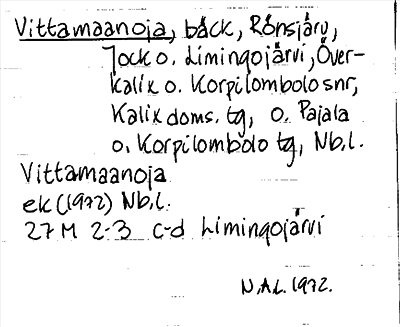 Vittamaanoja, bäck, Rönsjärv,
Jock o. Limingojärvi, Över-
kalix o. Korpilombolo snr,
Kalix doms. tg, o. Pajala
o. Korpilombolo tg, Nb.l.
Vittamaanoja
ek (1972) Nb.l.
27 M 2-3 c-d Limingojärvi
N.A.L. 1972.